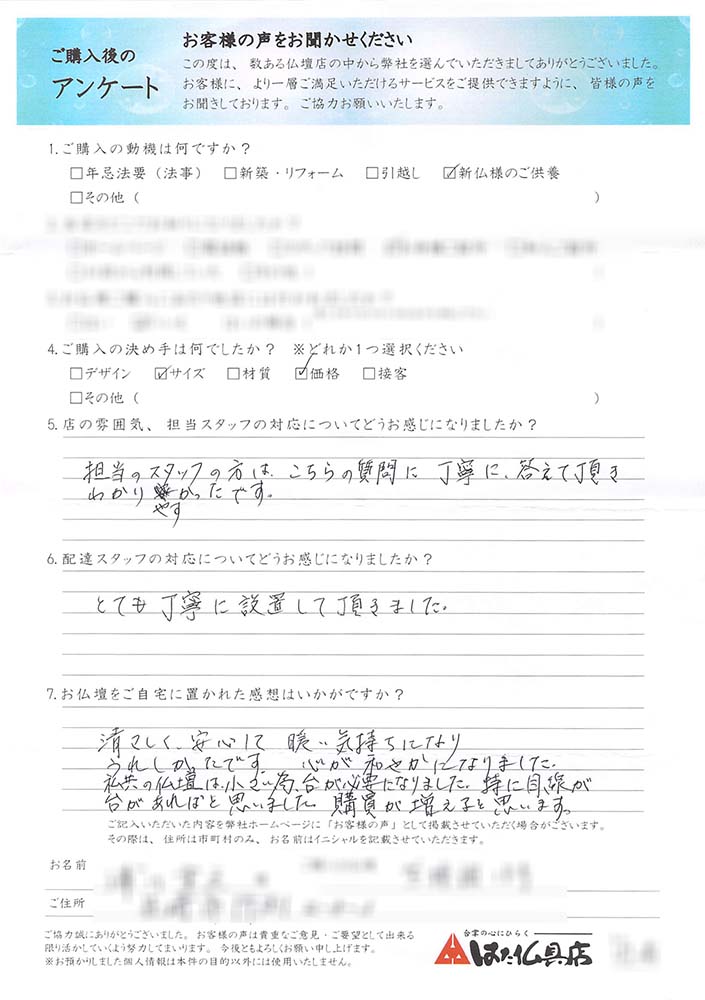 ご購入後の
アンケート
お客様の声をお聞かせください
この度は、数ある仏壇店の中から弊社を選んでいただきましてありがとうございました。
お客様に、より一層ご満足いただけるサービスをご提供できますように、皆様の声を
お聞きしております。ご協力お願いいたします。
1.ご購入の動機は何ですか？
□年忌法要（法事） □新築・リフォーム □引越し ☑新仏様のご供養
□その他（ ）
4.ご購入の決め手は何でしたか？ ※どれか1つ選択ください
□デザイン ☑サイズ □材質 ☑価格 □接客
□その他（ ）
5.店の雰囲気、担当スタッフの対応についてどうお感じになりましたか？
担当のスタッフの方は、こちらの質問に 丁寧に、答えて頂き
わかり やす かったです。
6.配達スタッフの対応についてどうお感じになりましたか？
とても 丁寧に 設置して頂きました。
7.お仏壇をご自宅に置かれた感想はいかがですか？
清々しく、安心して 暖い気持ちになり
うれしかったです。 心が和やかになりました。
私共の仏壇は、小さい為、台が必要になりました。特に目線が
台があればと思いました。購買が増えると思います。
ご記入いただいた内容を弊社ホームページに「お客様の声」として掲載させていただく場合がございます。
その際は、住所は市町村のみ、お名前はイニシャルを記載させていただきます。
お名前
ご住所
ご協力誠にありがとうございました。お客様の声は貴重なご意見・ご要望として出来る
限り活かしていくよう努力してまいります。今後ともよろしくお願い申し上げます。
※お預かりしました個人情報は本件の目的以外には使用いたしません。
合掌の心にひらく
はた仏具店